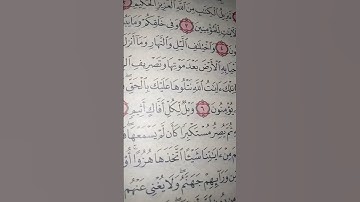 ٱلْكِتَٰبِ مِنَ ٱللَّهِ ٱلْعَزِيزِ ٱلْحَكِيمِ
لِّلْمُؤْمِنِينَ ٣ وَفِى خَلْقِكُمْ وَمَا
٤ وَٱخْتِلَٰفِ ٱلَّيْلِ وَٱلنَّهَارِ وَمَآ أَنزَلَ
بِهِ ٱلْأَرْضَ بَعْدَ مَوْتِهَا وَتَصْرِيفِ
ءَايَٰتُ ٱللَّهِ نَتْلُوهَا عَلَيْكَ بِٱلْحَقِّ
يُؤْمِنُونَ ٦ وَيْلٌ لِّكُلِّ أَفَّاكٍ أَثِيمٍ
ثُمَّ يُصِرُّ مُسْتَكْبِرًا كَأَن لَّمْ يَسْمَعْهَا
مِنْ ءَايَٰتِنَا شَيْـًٔا ٱتَّخَذَهَا هُزُوًا
مِّن وَرَآئِهِمْ جَهَنَّمُ وَلَا يُغْنِى عَنْهُم